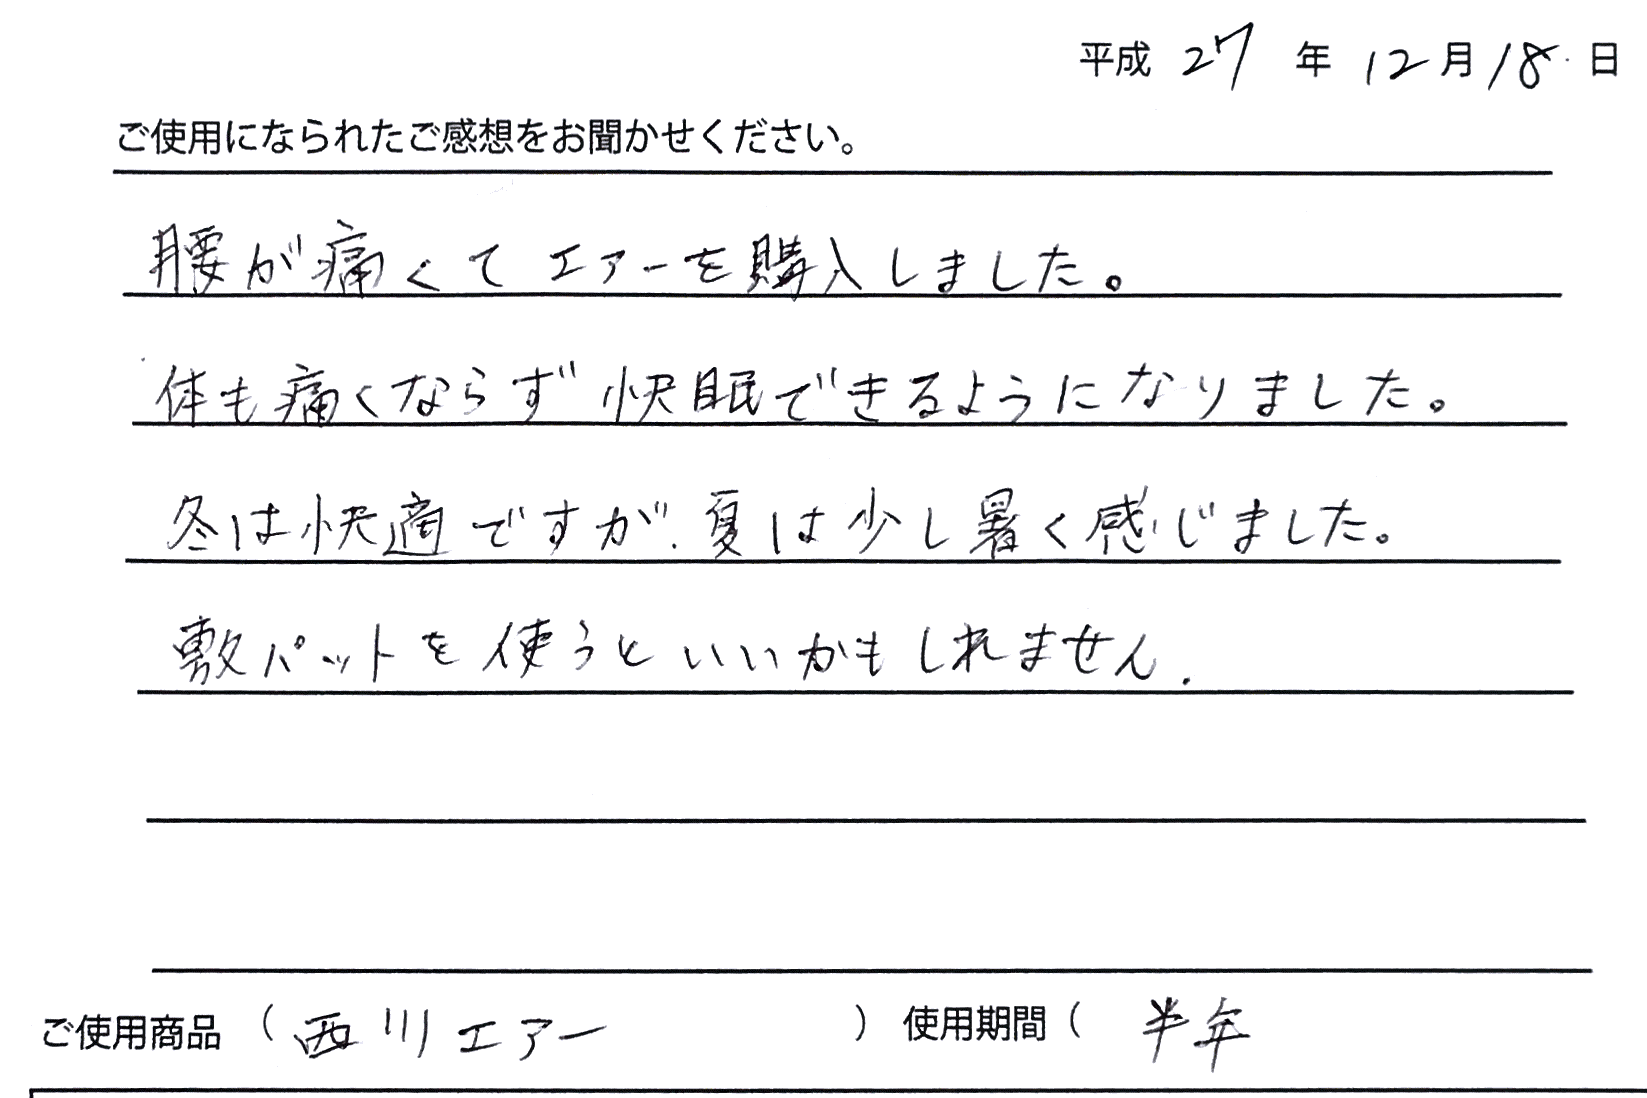 平成 27 年 12月18日
ご使用になられたご感想をお聞かせください。
腰が痛くてエアーを購入しました。
体も痛くならず快眠できるようになりました。
冬は快適ですが、夏は少し暑く感じました。
敷パットを使うといいかもしれません.
ご使用商品 ( 西川エアー ) 使用期間 ( 半年